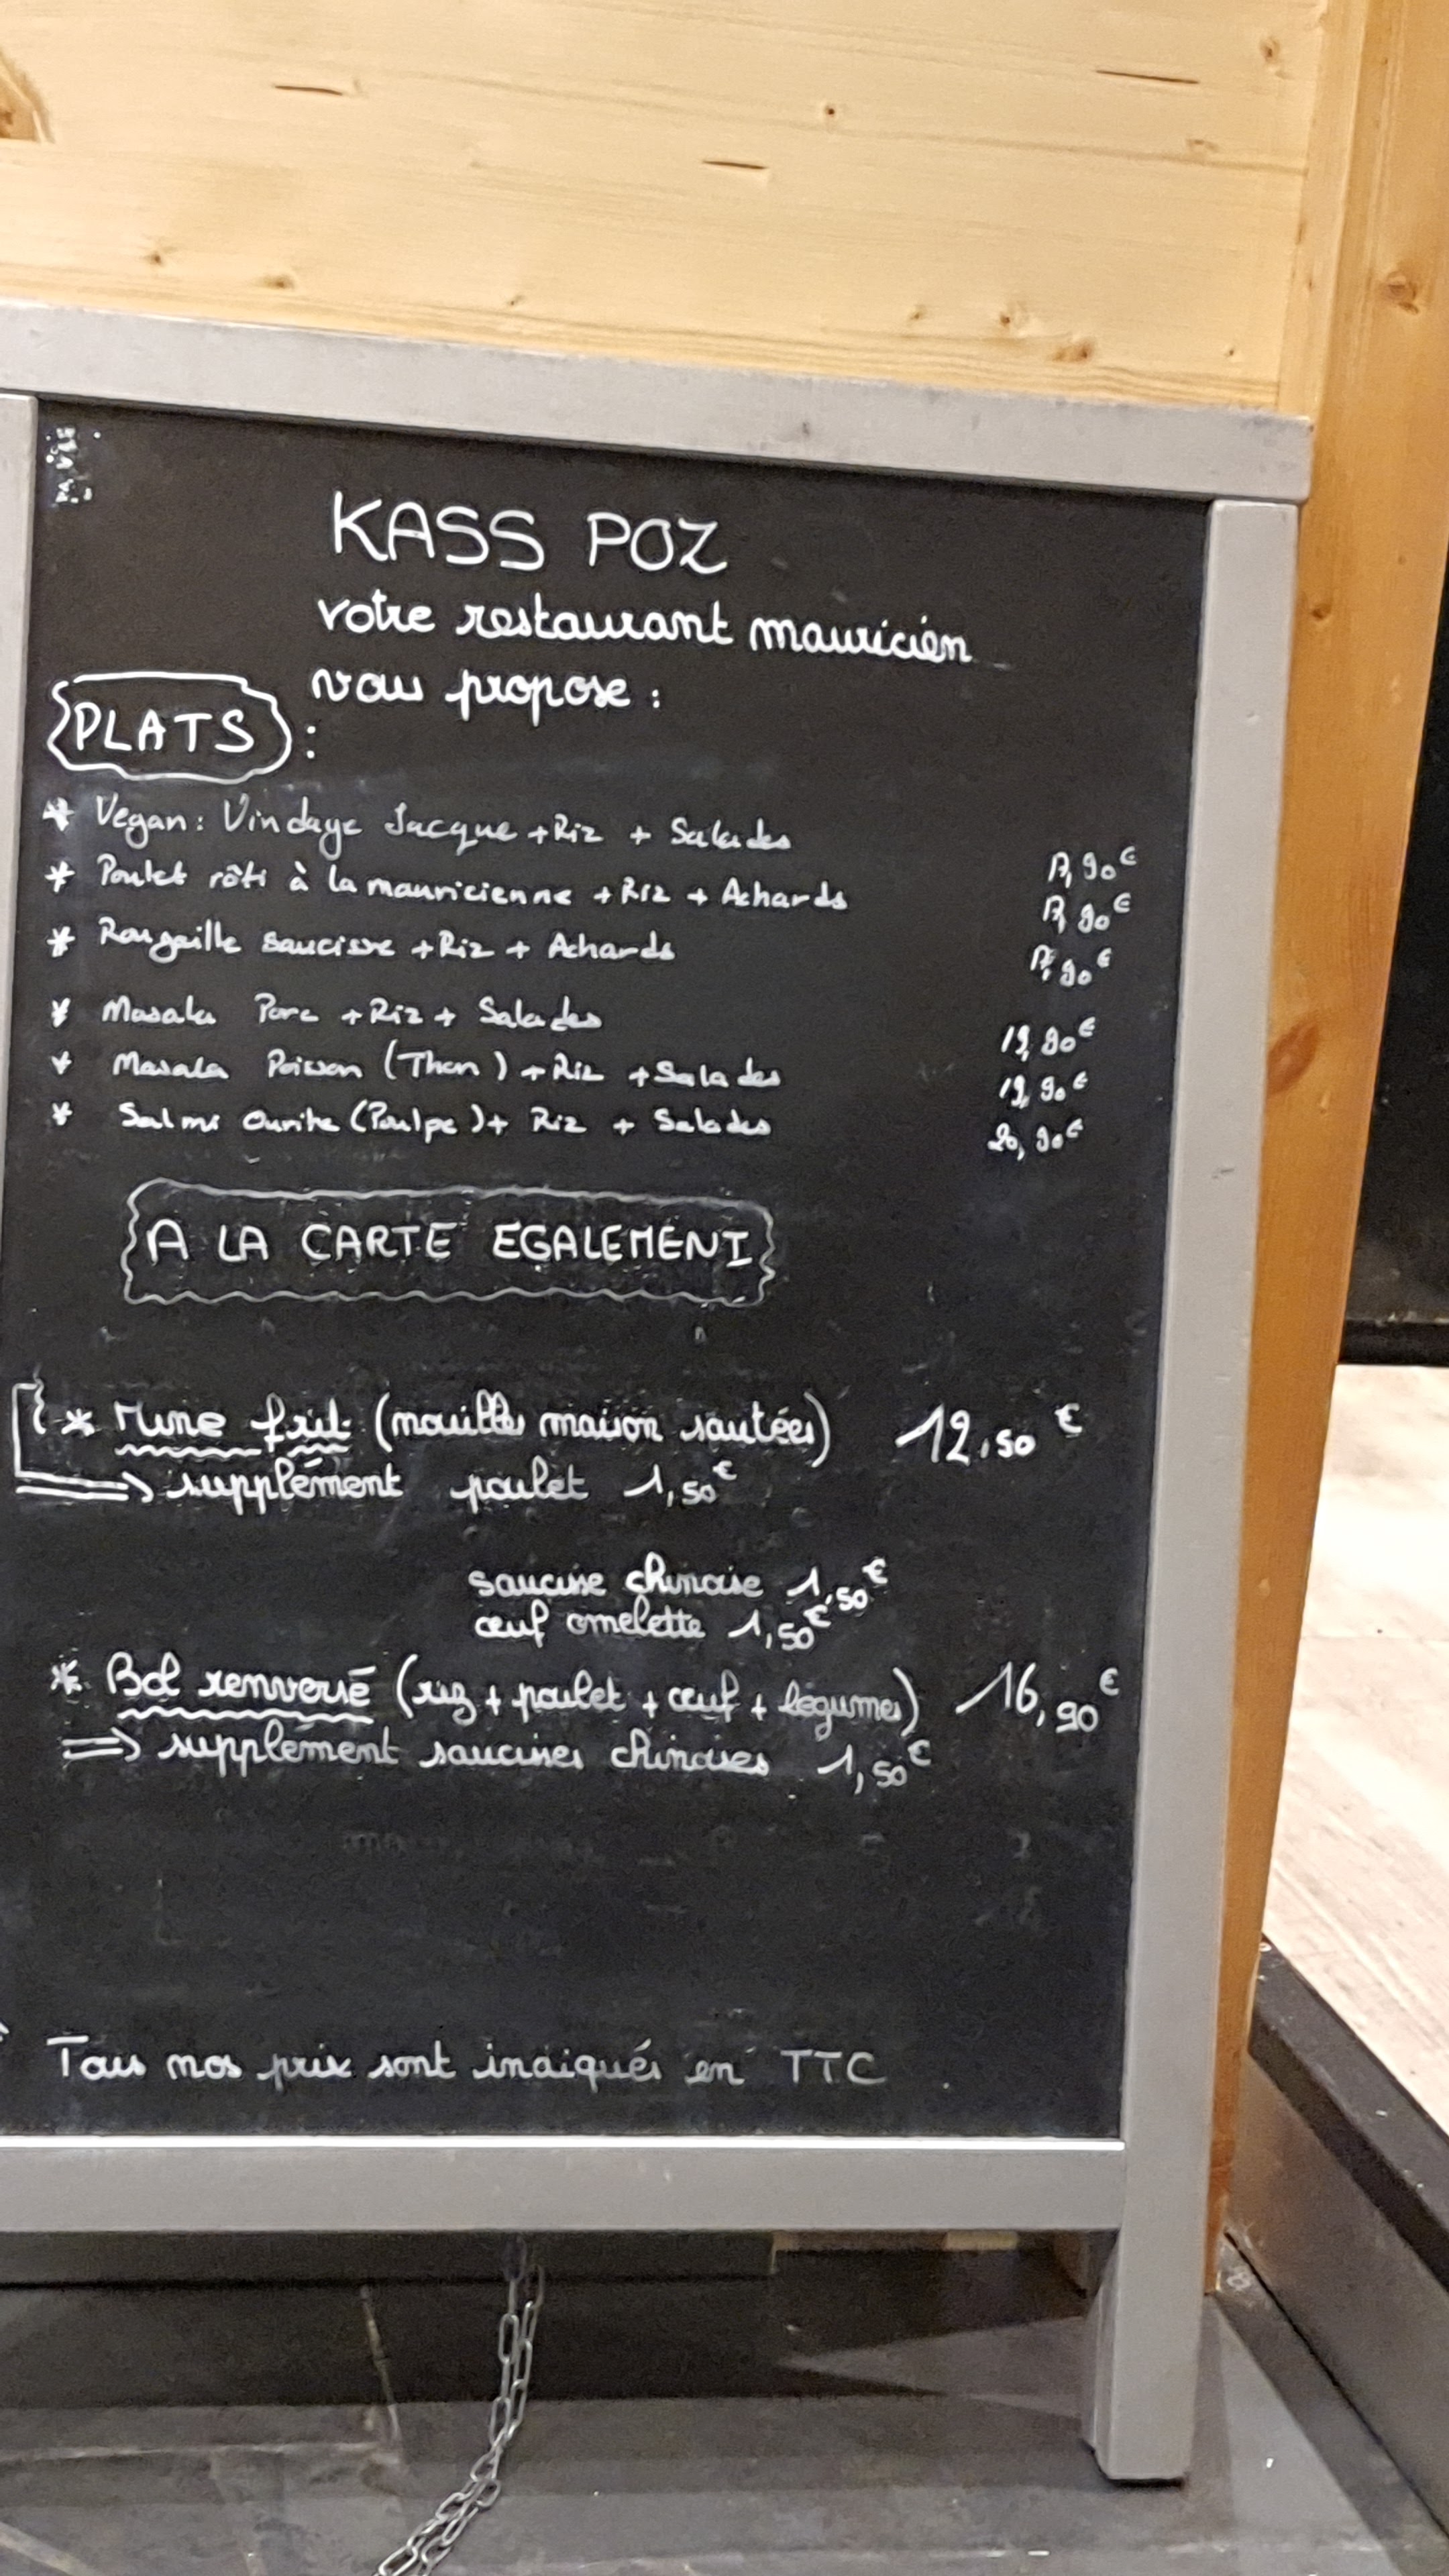 KASS POZ
votre restaurant mauricien
vous propose :
PLATS :
* Vegan : Vindaye Jacque + Riz + Salades
* Poulet rôti à la mauricienne + Riz + Achards
* Rougaille saucisse + Riz + Achards
* Masala Porc + Riz + Salades 19,90€
* Masala Poisson (Thon) + Riz + Salades 19,90€
* Salmi Ourite (Poulpe) + Riz + Salades 20,90€
A LA CARTE EGALEMENT
* Mine frit (nouilles maison sautées) 12,50 €
=> supplément poulet 1,50€
saucisse chinoise 1,50€
œuf omelette 1,50€
* Bol renversé (riz + poulet + œuf + légumes) 16,90€
=> supplément saucisses chinoises 1,50€
Tous nos prix sont indiqués en TTC